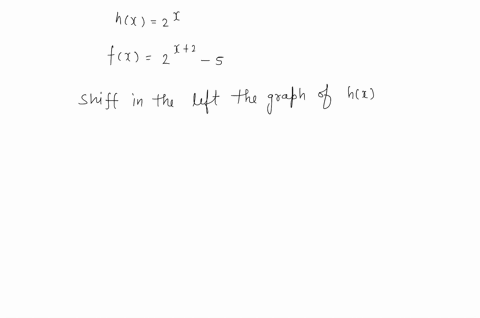 h(x) = 2^x
f(x) = 2^{x+2} - 5
Shiff in the left the graph of h(x)